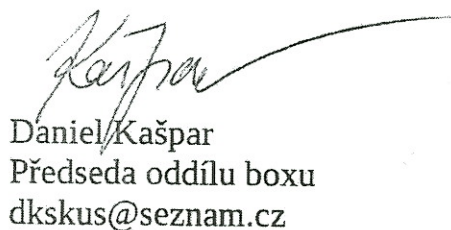 Kašpar
Daniel Kašpar
Předseda oddílu boxu
dkskus@seznam.cz